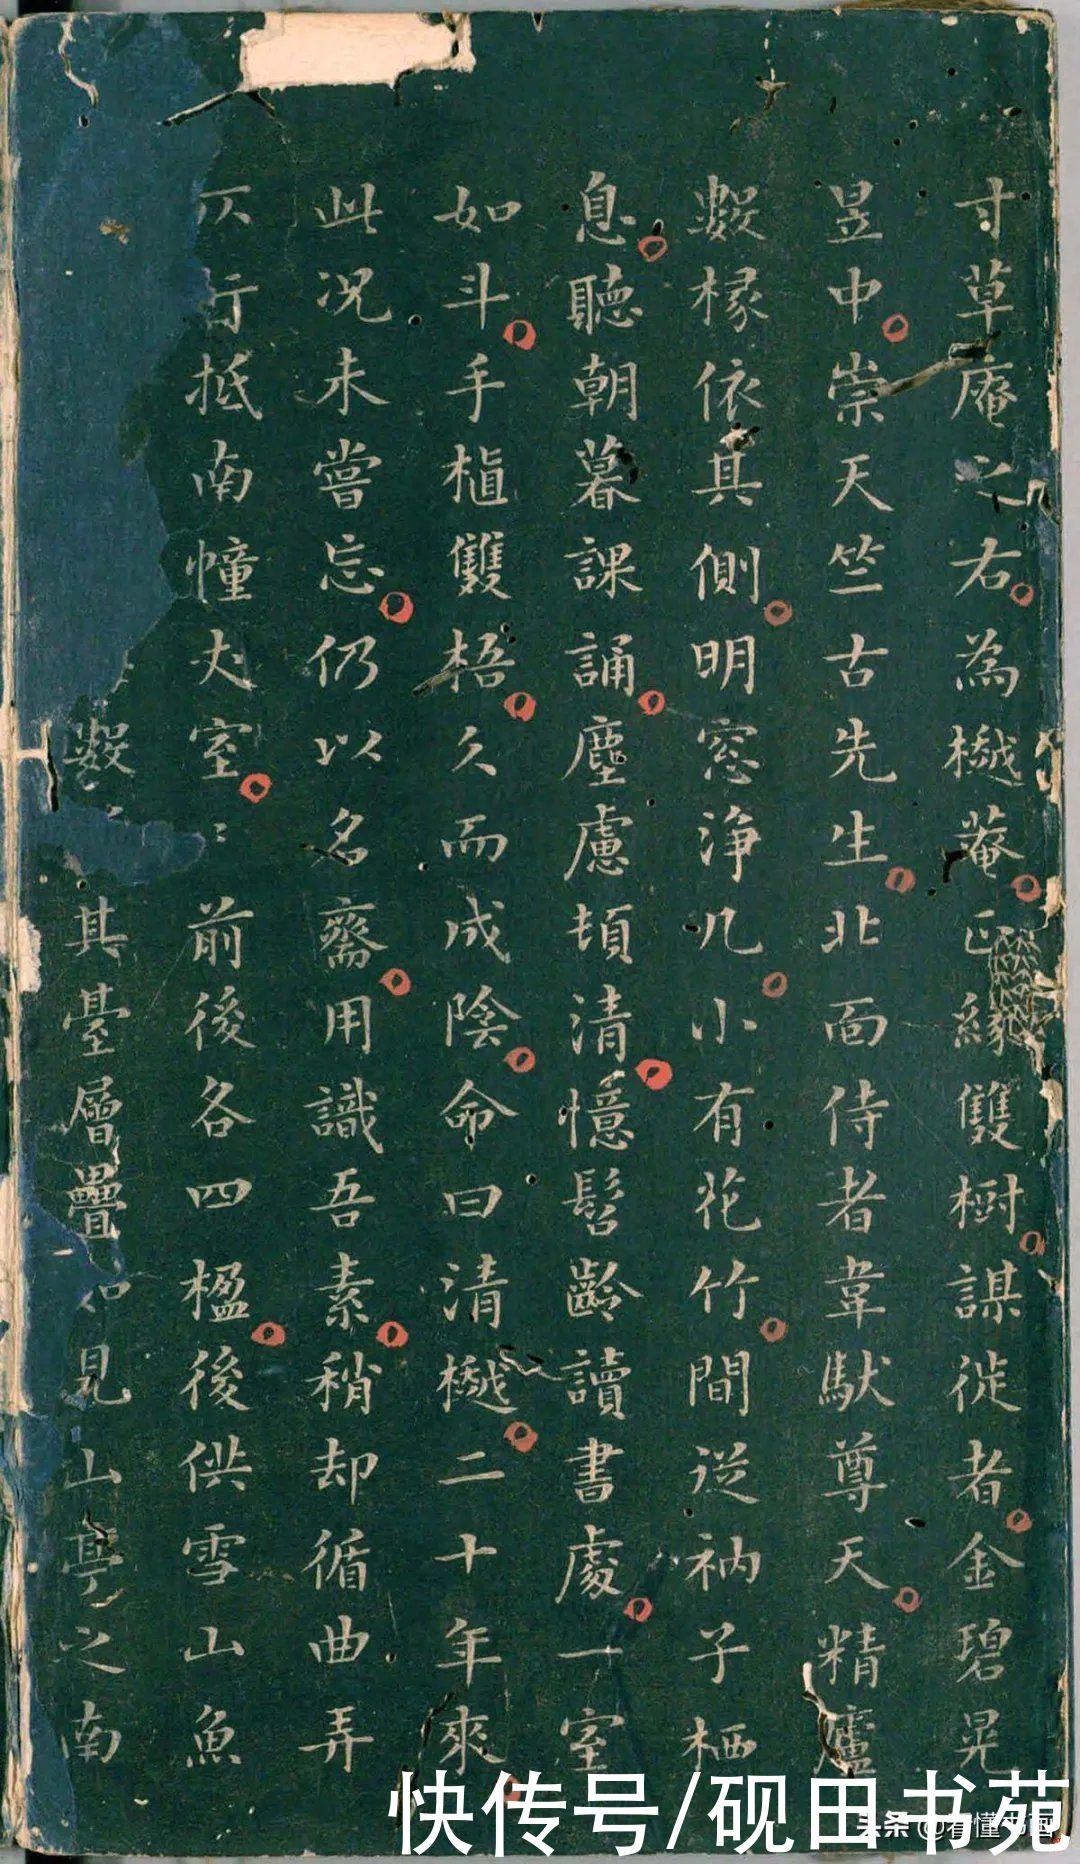 寸草庵之右為樾菴正緣雙樹謀徙者金碧晃
昱中崇天竺古先生北面侍者韋馱尊天精廬
數椽依其側明窓淨几小有花竹間從衲子栖
息聽朝暮課誦塵慮頓清憶髫齡讀書處一室
如斗手植雙梧久而成陰命曰清樾二十年來
此況未嘗忘仍以名齋用識吾素稍却循曲弄
抵南幢丈室前後各四楹後供雪山魚
數其臺層疊見山亭之南
快传号/砚田书苑
头条 @看懂书画